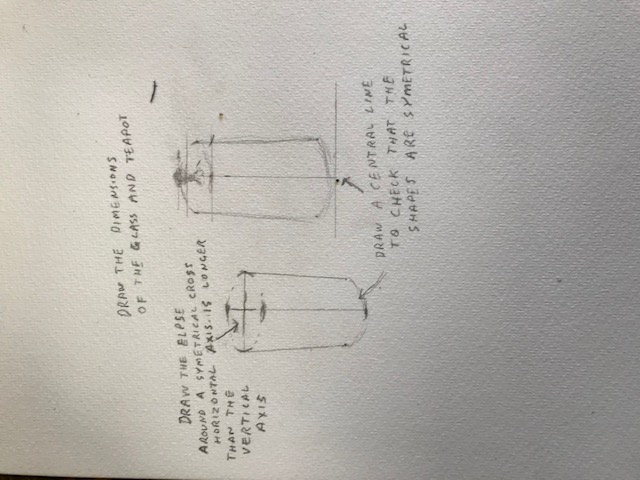 DRAW THE DIMENSIONS
OF THE GLASS AND TEAPOT
DRAW THE ELPSE
AROUND A SYMETRICAL CROSS
HORIZONTAL AXIS IS LONGER
THAN THE
VERTICAL
AXIS
DRAW A CENTRAL LINE
TO CHECK THAT THE
SHAPES ARE SYMETRICAL